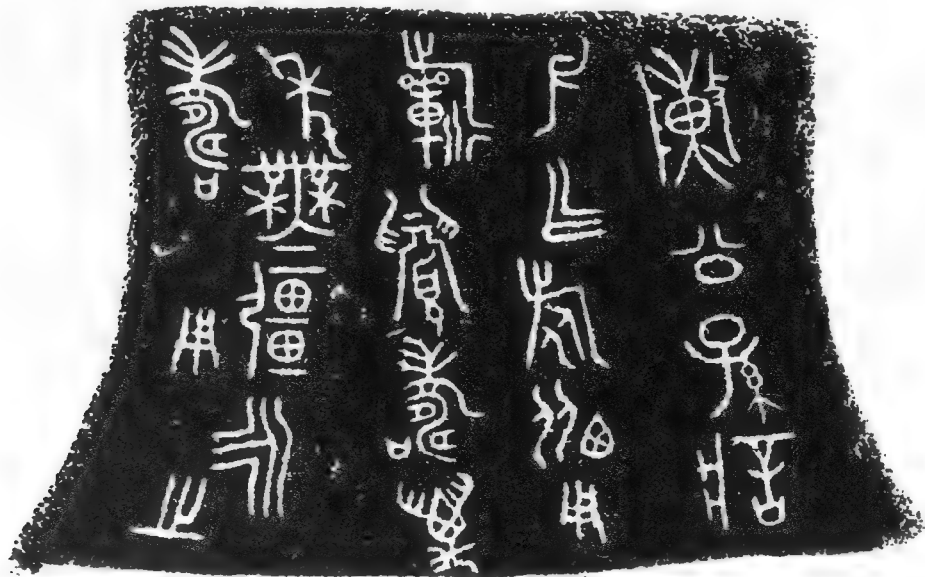 陳公孫
父乍旅用
祈眉壽萬
年無疆永
壽用之